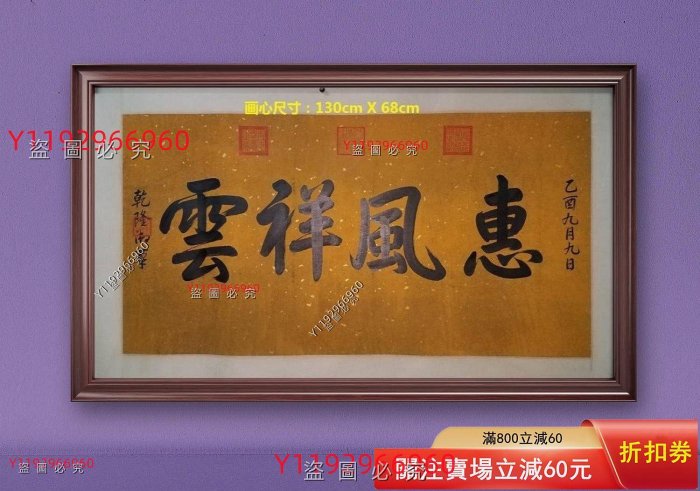 画心尺寸：130cm X 68cm
Y1192966960
盜圖必究
盜圖必究
Y1192966960
乙酉九月九日
惠風祥雲
乾隆御筆
Y1192966960
盜圖必究
Y1192966960
盜圖必究
Y1192966960
盜圖必究
滿800立減60
折扣券
關注賣場立減60元
Y1192966960
盜圖必究
Y1192966960
盜圖必究